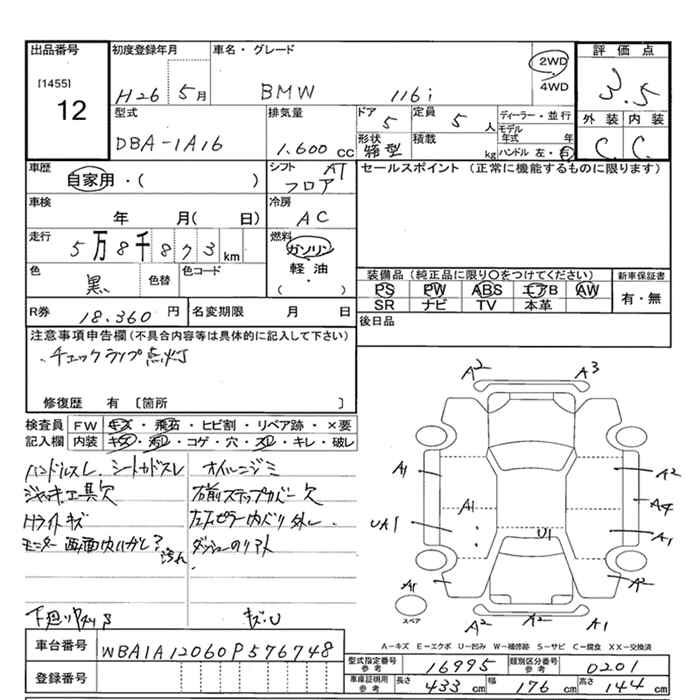 出品番号 初度登録年月 車名・グレード 評価点
[1455]
12
H26 5月 BMW 116i 2WD 4WD 3.5
型式 排気量 ドア 定員 ディーラー・並行 外装 内装
DBA-1A16 1.600 cc 5 5人 モデル年式 年 C. C.
形状 箱型 積載 kg ハンドル 左・右
車歴 シフト AT セールスポイント (正常に機能するものに限ります)
自家用・( ) フロア
車検 冷房
年 月( 日) AC
走行 燃料
5万8千873km ガソリン
色 色替 色コード 軽油
黒 ・
( )
装備品(純正品に限り○をつけてください) 新車保証書
PS PW ABS エアB AW 有・無
SR ナビ TV 本革
R券 18.360円 名変期限 月 日 後日品
注意事項申告欄(不具合内容等は具体的に記入して下さい)
・チェックランプ点灯
修復歴 有 〔箇所 〕
検査員 FW キズ・飛石・ヒビ割・リペア跡・×要
記入欄 内装 キズ・汚レ・コゲ・穴・スレ・キレ・破レ
ハンドルスレ、シートカドスレ オイルニジミ
ジャッキ、工具欠 右前ステップカバー欠
Hライトキズ 左Fピラー内バリ外レ
モニター画面内ハガレ? 汚れ
下廻りサビS キズ・U
A2 A3
A1 A2
A1 A4
UA1 U1 A1
A1 A2
A2 A2 A1
スペア
A-キズ E-エクボ U-凹み W-補修跡 S-サビ C-腐食 XX-交換済
車台番号 WBA1A12060P576748
型式指定番号 参考 16995 類別区分番号 参考 0201
登録番号 車庫証明用 参考 長さ 433cm 幅 176cm 高さ 144cm